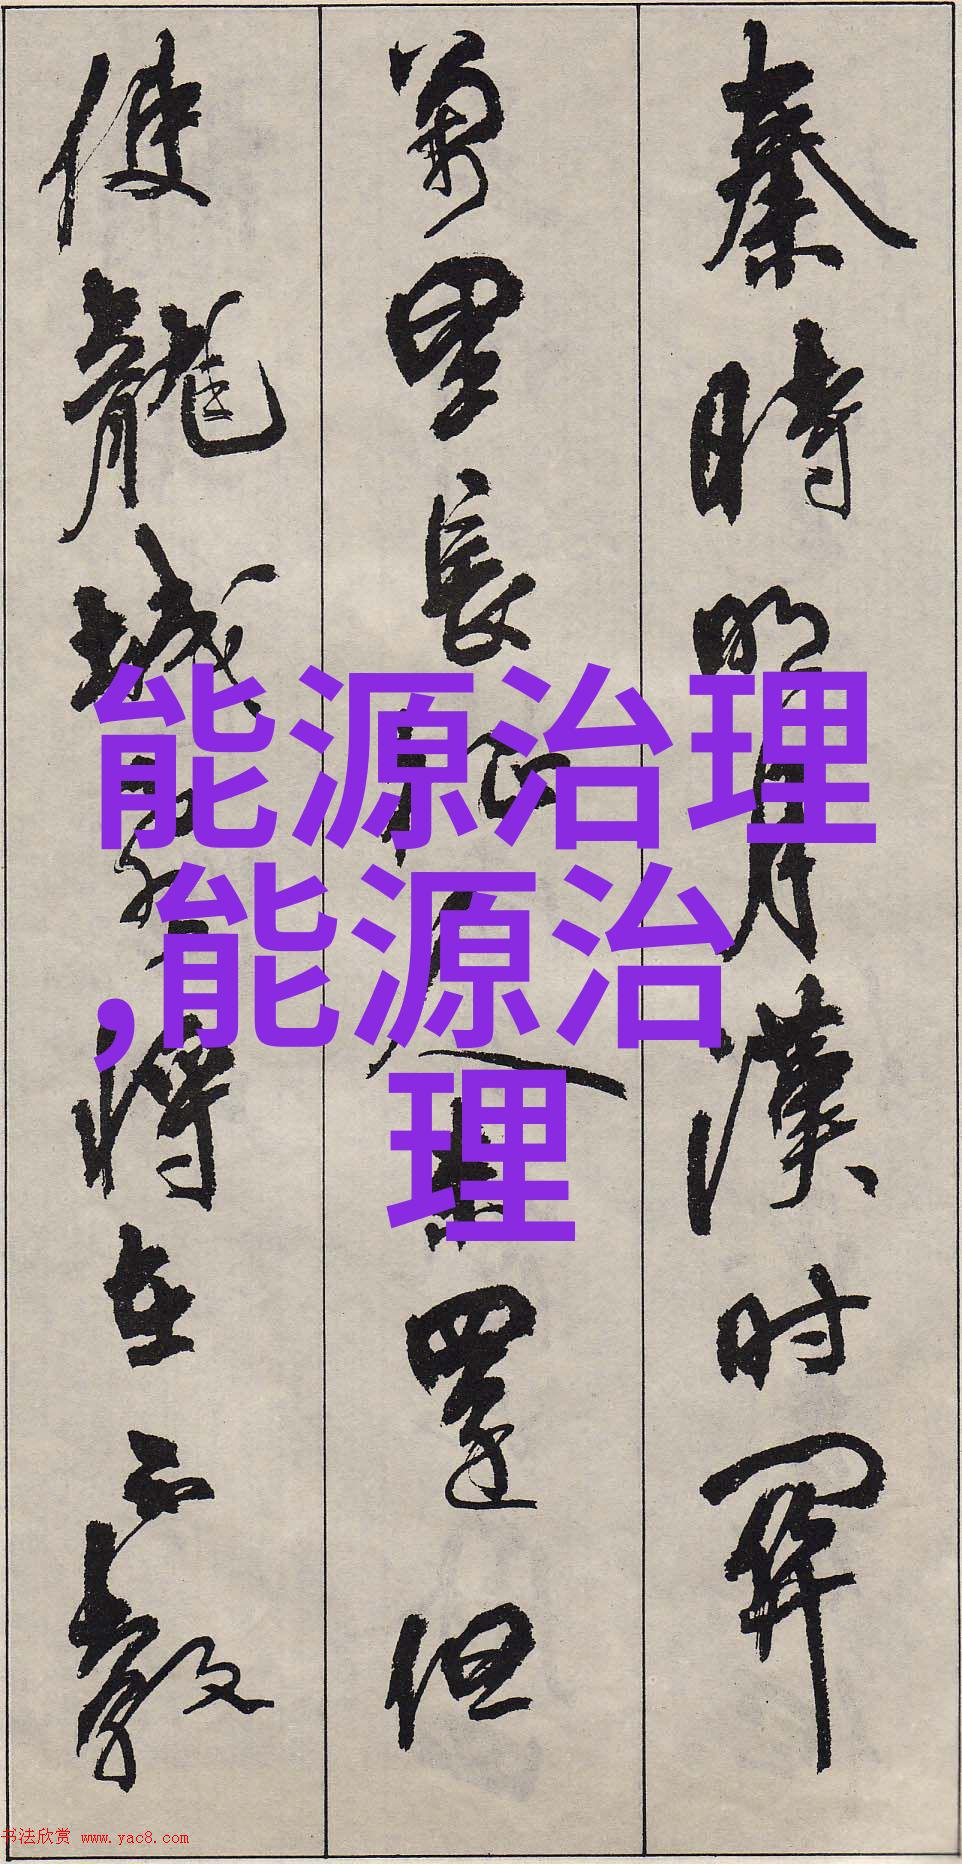 秦時明月漢时關
萬里長征人未還但
使龍城飛将在不教
能源治理
,能源治
理
书法欣赏 www.yac8.com